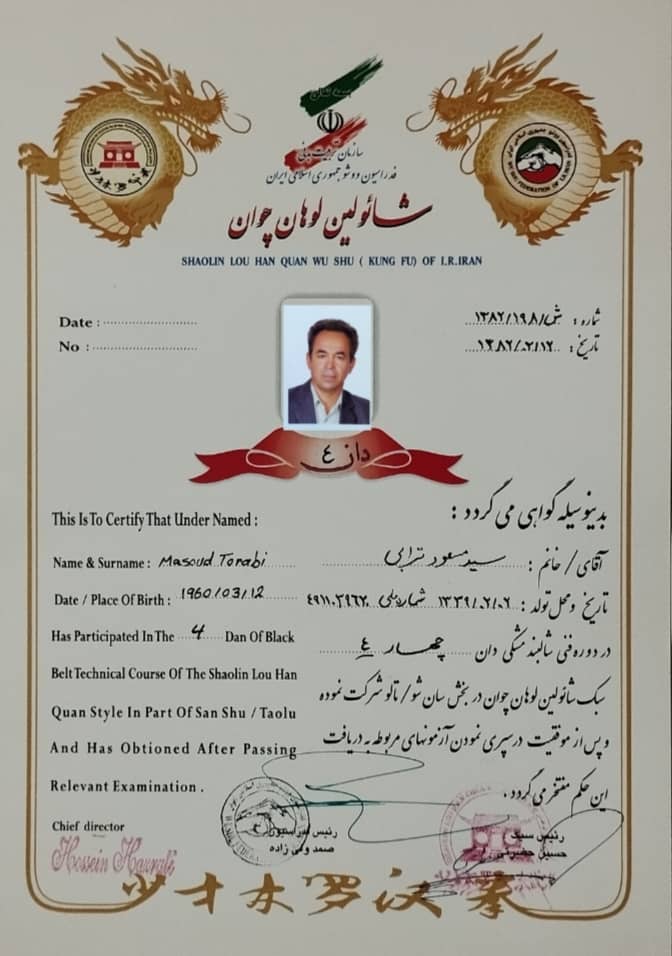 بسمه تعالی
سازمان تربیت بدنی
فدراسیون ووشو جمهوری اسلامی ایران
شائولین لوهان چوان
SHAOLIN LOU HAN QUAN WU SHU ( KUNG FU) OF I.R.IRAN
Date :
No :
شماره : ۱۳۸۲/۱۹۸/ش
تاریخ : ۱۳۸۲/۲/۱۲
دان ٤
بدینوسیله گواهی می گردد :
This Is To Certify That Under Named :
آقای / خانم : سید مسعود ترابی
Name & Surname : Masoud Torabi
تاریخ و محل تولد : ۱۳۳۹/۰۲/۰۲ شماره ملی
Date / Place Of Birth : 1960/03/12
در دوره فنی شالبند مشکی دان چهار ٤
Has Participated In The 4 Dan Of Black
سبک شائولین لوهان چوان در بخش سان شو / تالو شرکت نموده
Belt Technical Course Of The Shaolin Lou Han
Quan Style In Part Of San Shu / Taolu
و پس از موفقیت در سپری نمودن آزمونهای مربوطه به دریافت
And Has Obtioned After Passing
این حکم مفتخر می گردد .
Relevant Examination .
Chief director
رئیس فدراسیون
صمد ولی زاده
رئیس سبک
حسین حضرتی
少林罗汉拳